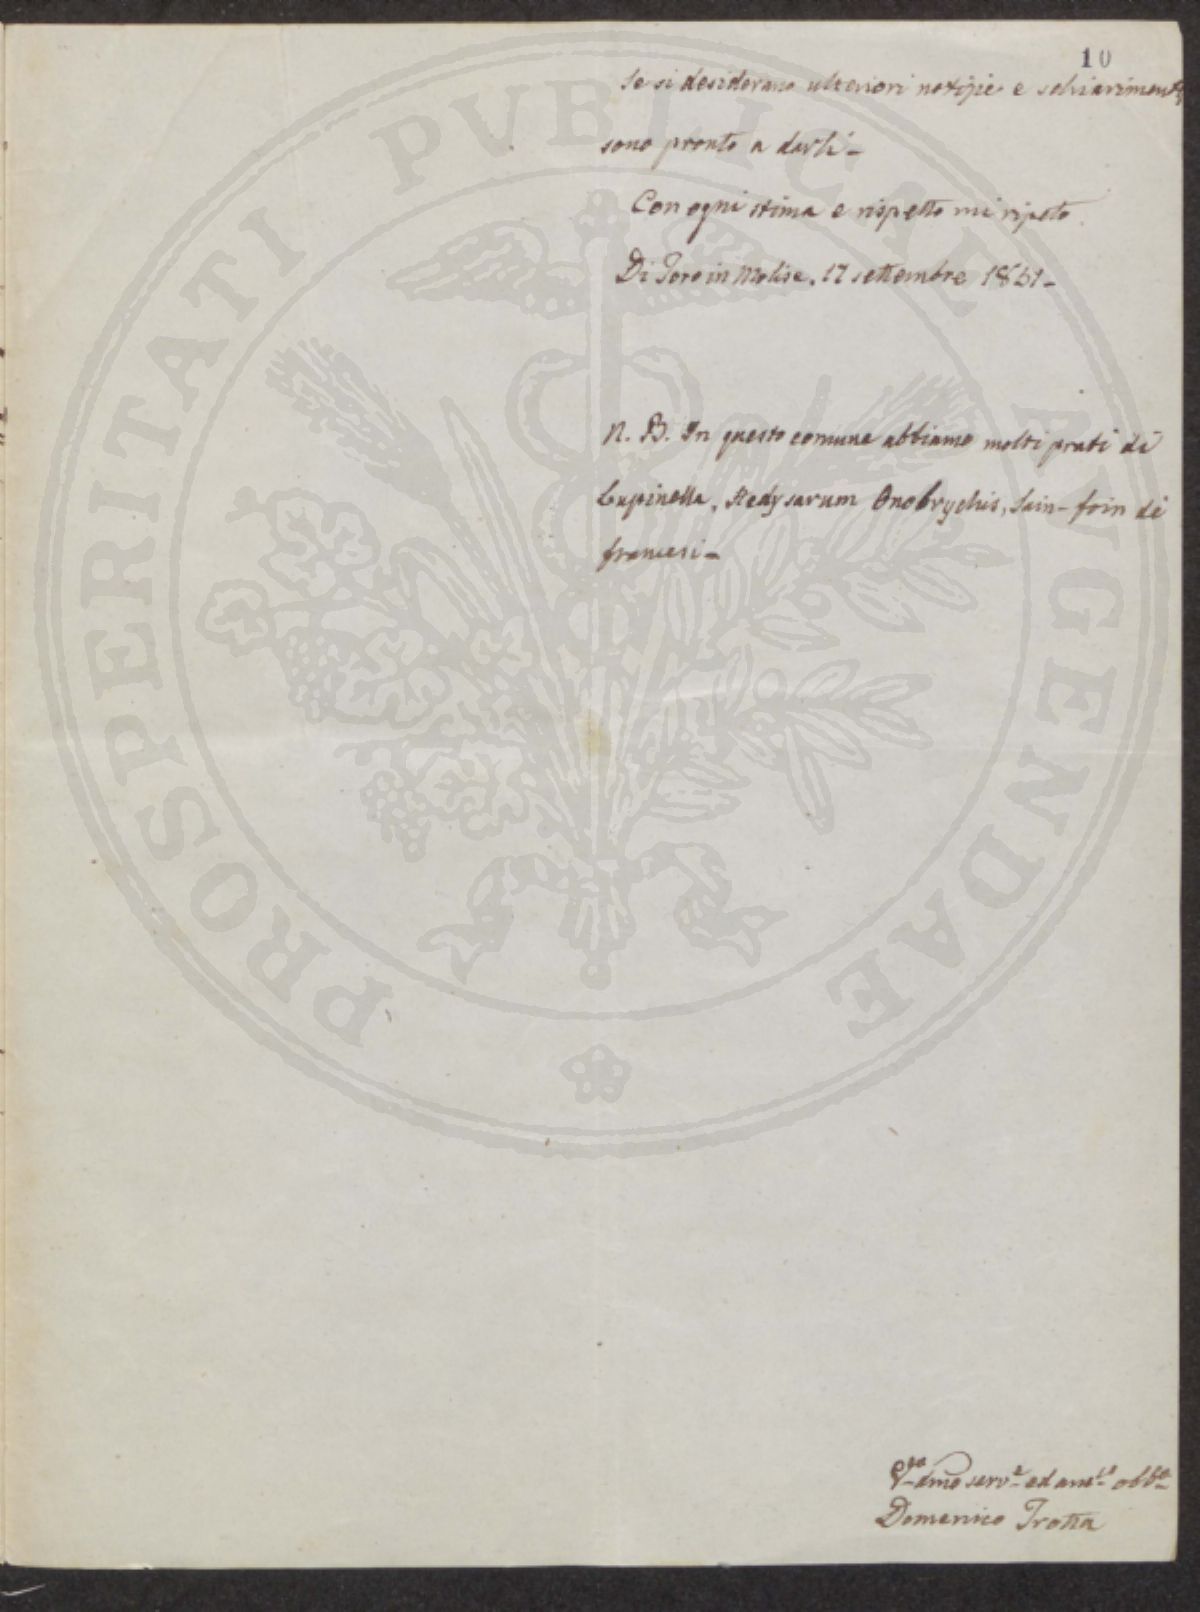 10
Se si desiderano ulteriori notizie e schiarimenti
sono pronto a darli -
Con ogni stima e rispetto mi ripeto.
Di Toro in Molise, 17 settembre 1851 -
N. B. In questo comune abbiamo molti prati di
Lupinella, Hedysarum Onobrychis, Sain-foin di
francesi -
serv.e ed am.co obb.o
Domenico Trotta
PROSPERITATI PUBLICAE AUGENDAE